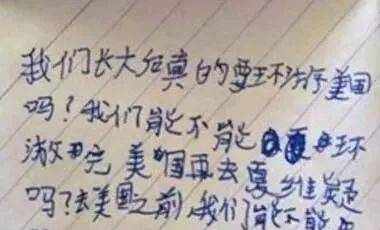 我们长大后真的要环游美国
吗？我们能不能
游完美国再去夏维
吗？去美国之前，我们能不能